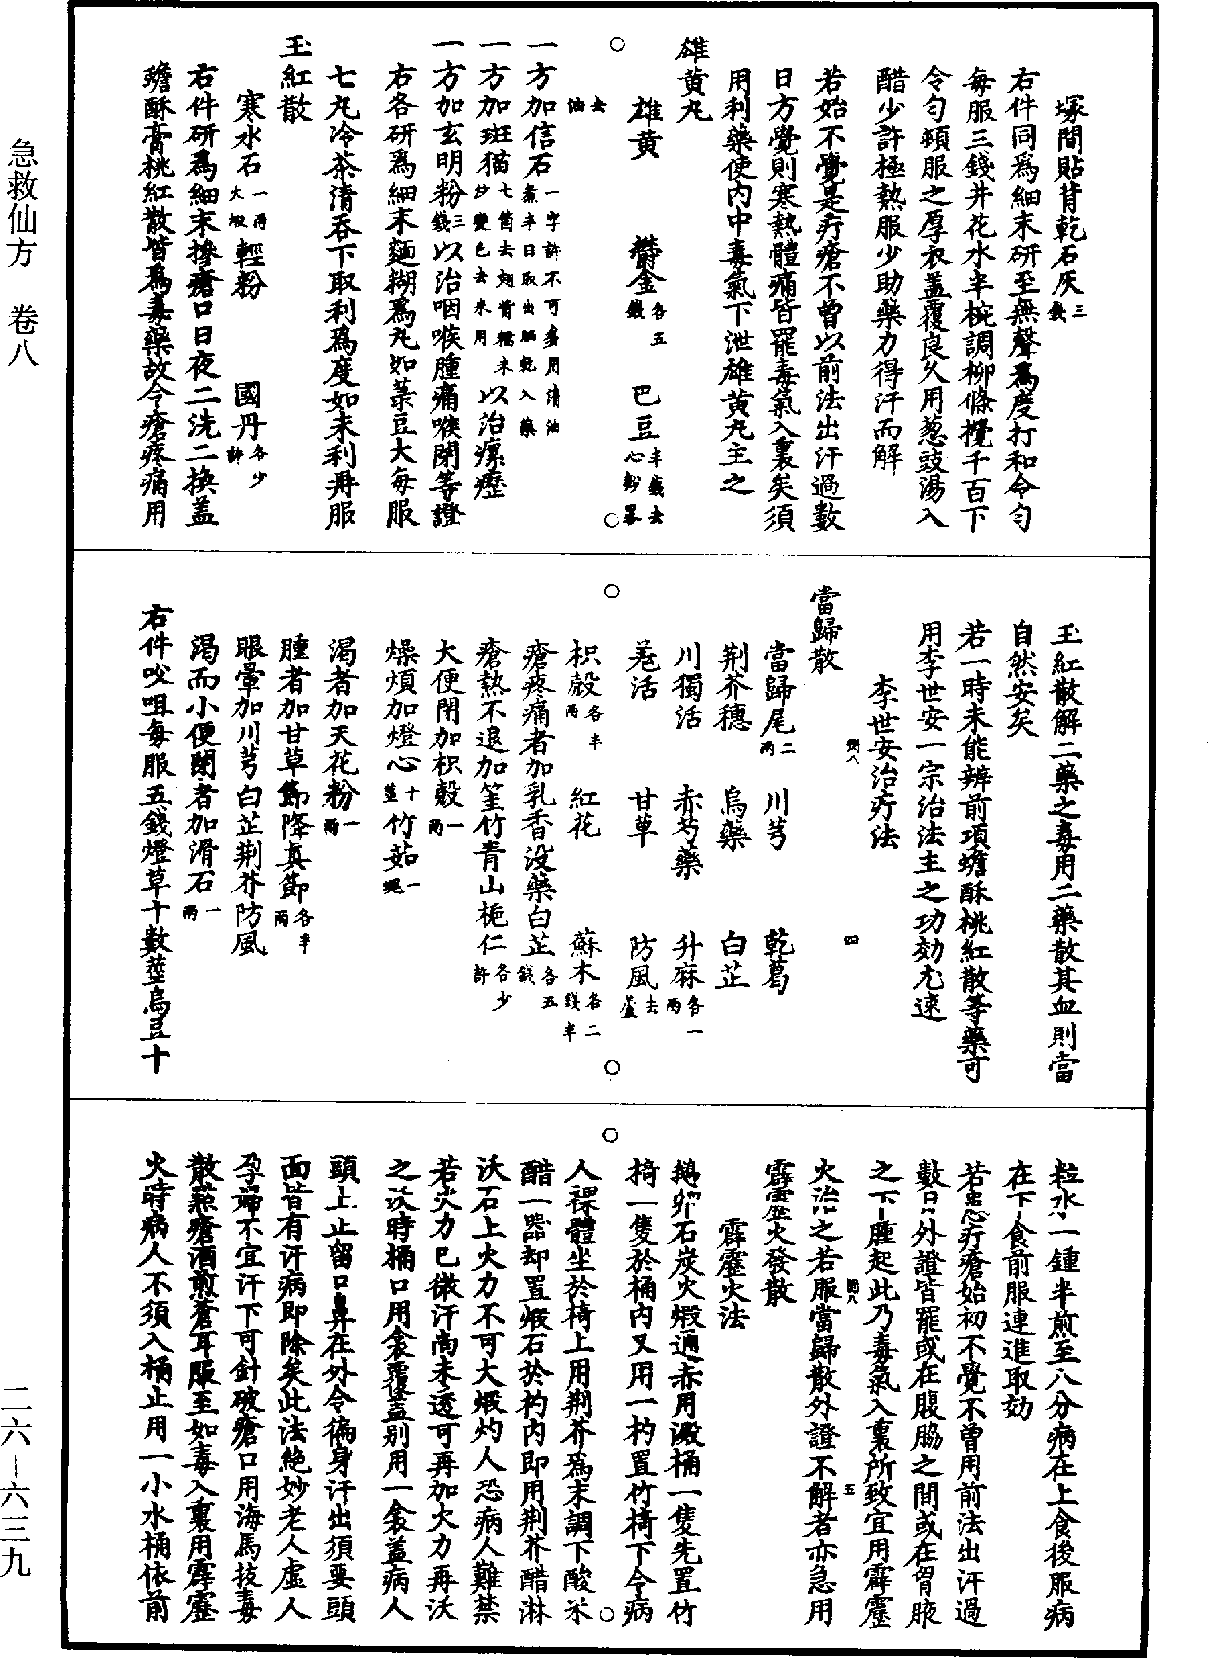 急救仙方　卷八
塚間貼背乾石灰三錢
右件同爲細末研至無聲爲度打和令勻
每服三錢井花水半椀調柳條攪千百下
令勻頓服之厚衣蓋覆良久用葱豉湯入
醋少許極熱服少助藥力得汗而解
若始不覺是疔瘡不曾以前法出汗過數
日方覺則寒熱體痛皆罷毒氣入裏矣須
用利藥使內中毒氣下泄雄黃丸主之
雄黃丸
雄黃　鬱金各五錢　巴豆半錢去心
去油
一方加信石一字許不可多用清油煮半日取出晒乾入藥
一方加斑猫七箇去翅背糯米炒變色去米用以治瘰癧
一方加玄明粉三錢以治咽喉腫痛喉閉等證
右各研爲細末麵糊爲丸如菉豆大每服
七丸冷茶清吞下取利爲度如未利再服
玉紅散
寒水石一兩火煅　輕粉　國丹各少許
右件研爲細末摻瘡口日夜二洗二換蓋
蟾酥膏桃紅散皆爲毒藥故令瘡疼痛用
玉紅散解二藥之毒用二藥散其血則當
自然安矣
若一時未能辨前項蟾酥桃紅散等藥可
用李世安一宗治法主之功効尤速
李世安治疔法
當歸散
當歸尾二兩　川芎　乾葛
荆芥穗　烏藥　白芷
川獨活　赤芍藥　升麻各一兩
羌活　甘草　防風去蘆
枳殻各半兩　紅花　蘇木各二錢半
瘡疼痛者加乳香没藥白芷各五錢
瘡熱不退加筀竹青山梔仁各少許
大便閉加枳殻一兩
燥煩加燈心十莖竹茹一
渴者加天花粉一兩
腫者加甘草節降真節各半兩
眼暈加川芎白芷荆芥防風
渴而小便閉者加滑石一兩
右件㕮咀每服五錢燈草十數莖烏豆十
粒水一鍾半煎至八分病在上食後服病
在下食前服連進取効
若患疔瘡始初不覺不曾用前法出汗過
數日外證皆罷或在腹脇之間或在胷腋
之下腫起此乃毒氣入裏所致宜用霹靂
火治之若服當歸散外證不解者亦急用
霹靂火發散
霹靂火法
鵝卵石炭火煅通赤用澱桶一隻先置竹
椅一隻於桶內又用一杓置竹椅下令病
人裸體坐於椅上用荆芥爲末調下酸米
醋一器却置煅石於杓內即用荆芥醋淋
沃石上火力不可大煅灼人恐病人難禁
若火力已微汗尚未透可再加火力再沃
之沃時桶口用衾覆蓋别用一衾蓋病人
頭上止留口鼻在外令徧身汗出須要頭
面皆有汗病即除矣此法絶妙老人虛人
孕婦不宜汗下可針破瘡口用海馬拔毒
散蒸瘡酒煎蒼耳服至如毒入裏用霹靂
火時病人不須入桶止用一小水桶依前
二六－六三九